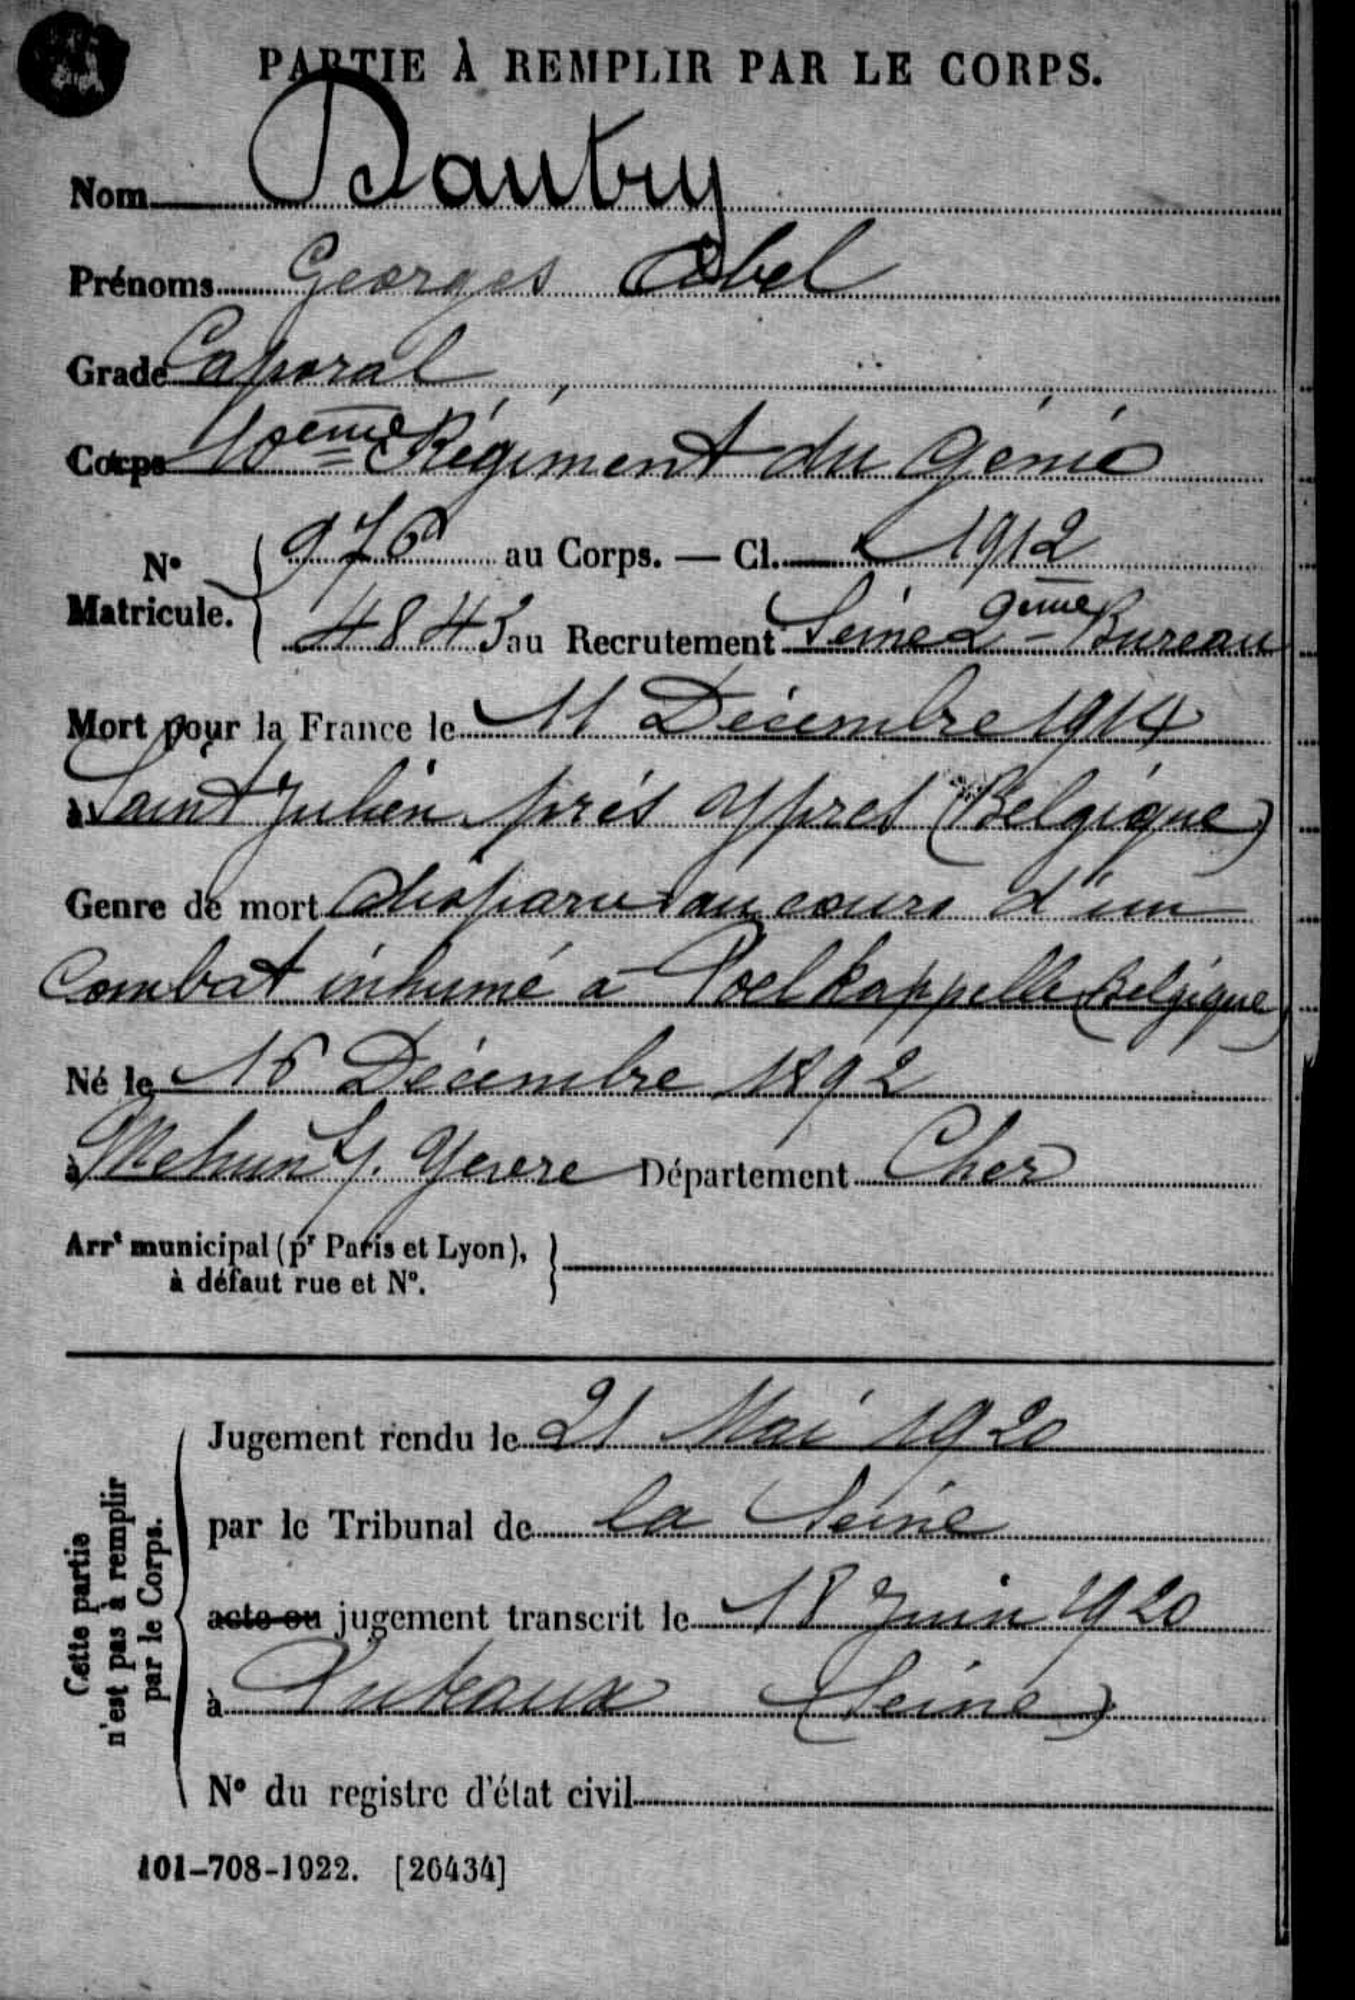 PARTIE À REMPLIR PAR LE CORPS.
Nom Dautry
Prénoms Georges Abel
Grade Caporal
Corps 10eme Régiment du Génie
N° Matricule. 976 au Corps. — Cl. 1912
4843 au Recrutement Seine 2eme Bureau
Mort pour la France le 11 Décembre 1914
à Saint Julien près Ypres (Belgique)
Genre de mort disparu au cours d'un
Combat inhumé à Poelkappelle (Belgique)
Né le 16 Décembre 1892
à Mehun s/ Yevre Département Cher
Arrt municipal (pr Paris et Lyon),
à défaut rue et N°.
Cette partie
n'est pas à remplir
par le Corps.
Jugement rendu le 21 Mai 1920
par le Tribunal de la Seine
acte ou jugement transcrit le 18 Juin 1920
à Puteaux (Seine)
N° du registre d'état civil
101-708-1922. [26434]